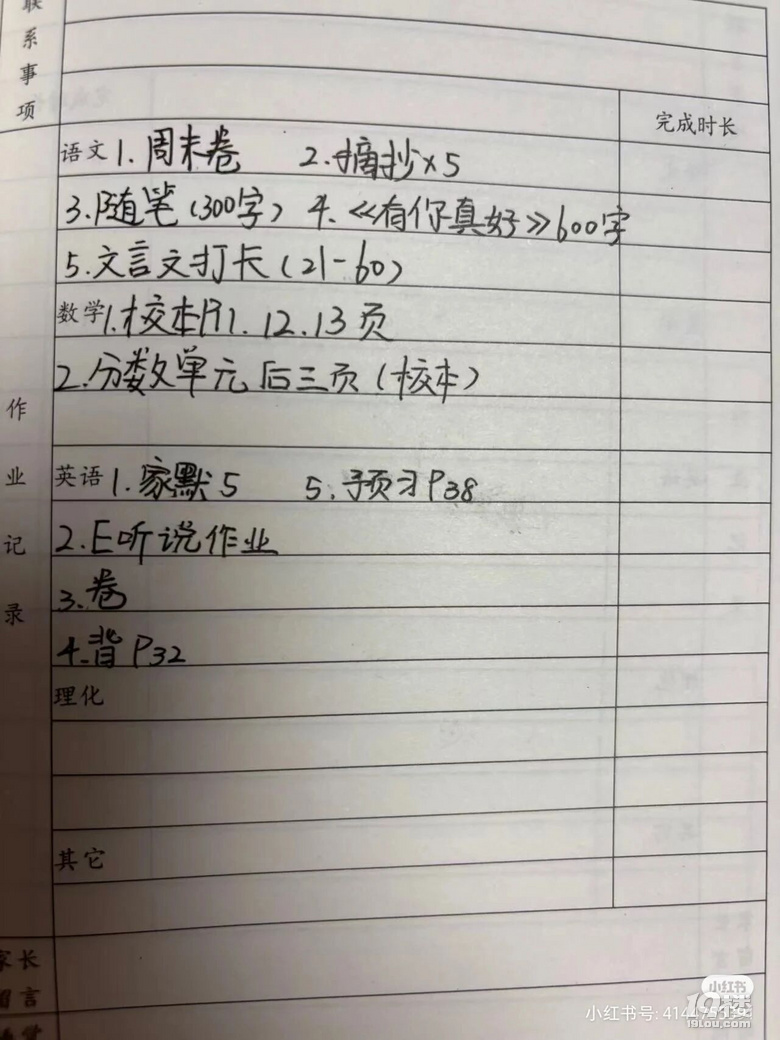 联系事项
完成时长
语文 1. 周末卷 2. 摘抄×5
3. 随笔(300字) 4. 《有你真好》600字
5. 文言文打卡(21-60)
数学 1. 校本P11. 12. 13页
2. 分数单元后三页(校本)
作业记录
英语 1. 家默5 5. 预习P38
2. E听说作业
3. 卷
4. 背P32
理化
其它
家长
留言
小红书
小红书号:
19lou.com